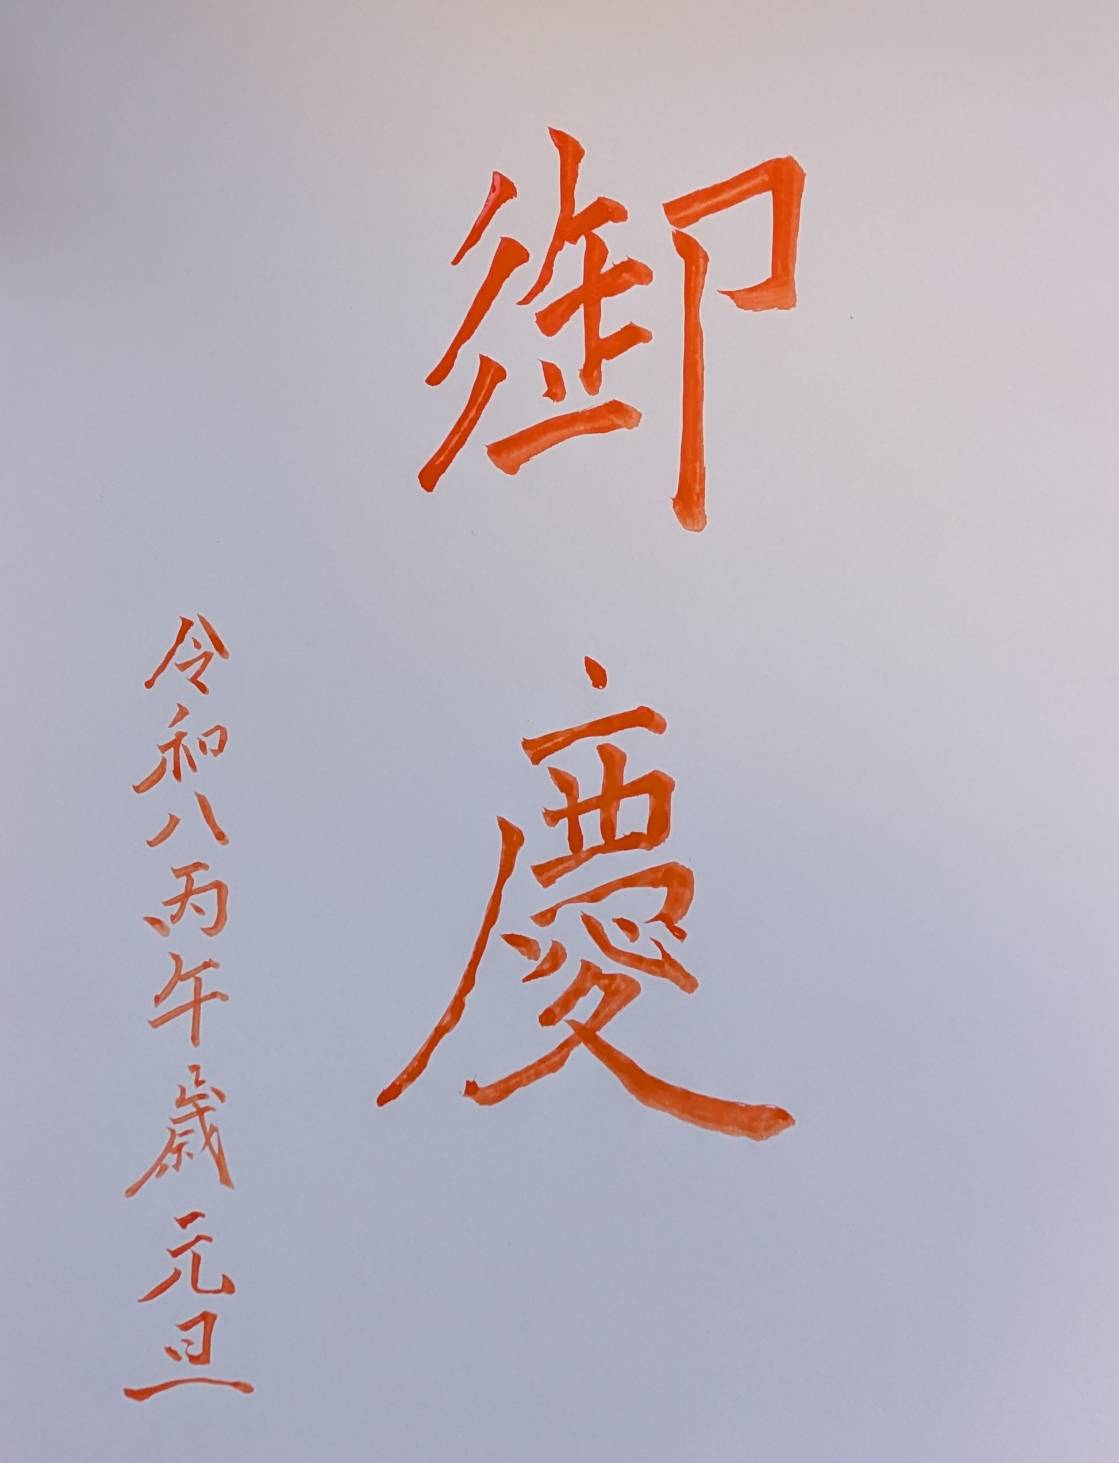 御慶
令和八丙午歳元旦